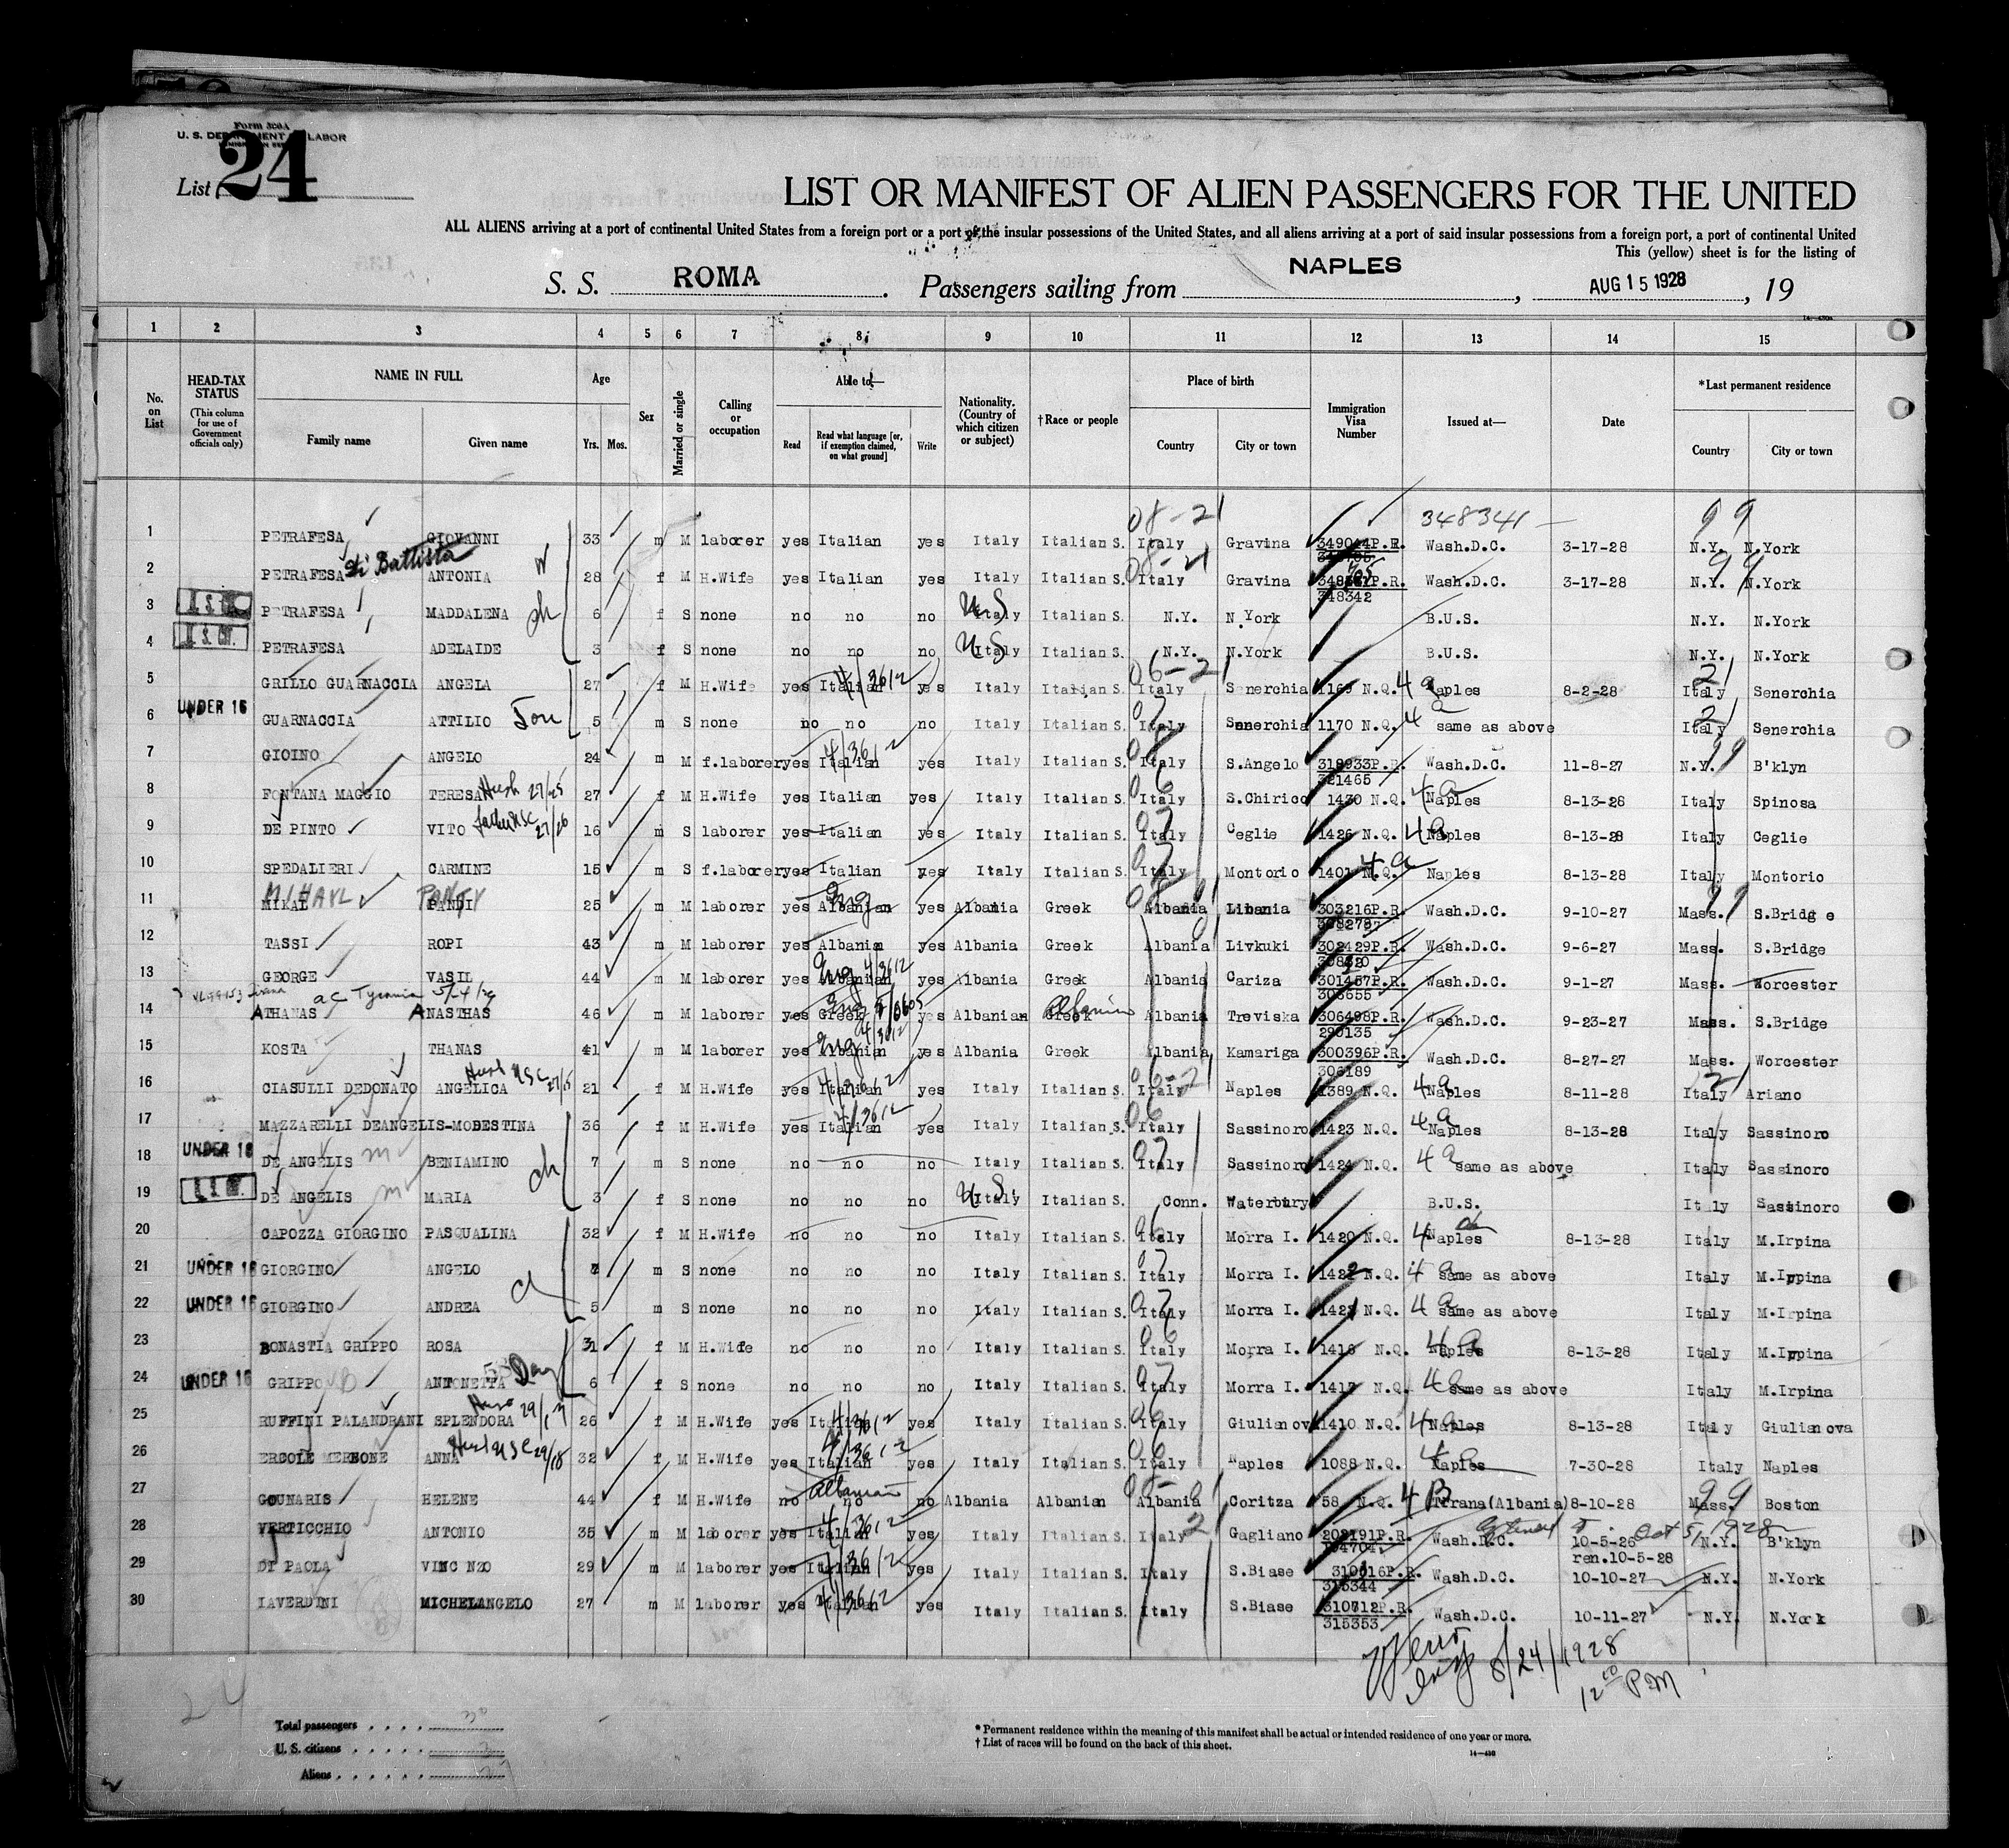 Form 500A
U. S. DEPARTMENT OF LABOR
List 24
LIST OR MANIFEST OF ALIEN PASSENGERS FOR THE UNITED
ALL ALIENS arriving at a port of continental United States from a foreign port or a port of the insular possessions of the United States, and all aliens arriving at a port of said insular possessions from a foreign port, a port of continental United
This (yellow) sheet is for the listing of
S. S. ROMA. Passengers sailing from NAPLES, AUG 15 1928, 19
1 2 3 4 5 6 7 8 9 10 11 12 13 14 15
No. on List
HEAD-TAX STATUS (This column for use of Government officials only)
NAME IN FULL Family name Given name
Age Yrs. Mos.
Sex
Married or single
Calling or occupation
Able to— Read Read what language [or, if exemption claimed, on what ground] Write
Nationality. (Country of which citizen or subject)
†Race or people
Place of birth Country City or town
Immigration Visa Number
Issued at—
Date
*Last permanent residence Country City or town
08-21 348341 — 99
1 PETRAFESA GIOVANNI 33 m M laborer yes Italian yes Italy Italian S. Italy Gravina 349044P.R. Wash.D.C. 3-17-28 N.Y. N.York
Di Battista
2 PETRAFESA ANTONIA W 28 f M H.Wife yes Italian yes Italy Italian S. Italy Gravina P.R. 348342 Wash.D.C. 3-17-28 N.Y. N.York
3 PETRAFESA MADDALENA ch 6 f S none no no no U.S. Italy Italian S. N.Y. N.York B.U.S. N.Y. N.York
4 U.S. CIT. PETRAFESA ADELAIDE 3 f S none no no no U.S. Italy Italian S. N.Y. N.York B.U.S. N.Y. N.York
5 GRILLO GUARNACCIA ANGELA 27 f M H.Wife yes Italian 4/3612 yes Italy Italian S. 06-21 Italy Senerchia 1169 N.Q. 4a Naples 8-2-28 Italy Senerchia
6 UNDER 16 GUARNACCIA ATTILIO Son 5 m S none no no no Italy Italian S. 07 Italy Senerchia 1170 N.Q. 4a same as above Italy Senerchia
7 GIOINO ANGELO 24 m M f.laborer yes Italian 4/3612 yes Italy Italian S. Italy S.Angelo 319933P.R. 321465 Wash.D.C. 11-8-27 N.Y. B'klyn
8 FONTANA MAGGIO TERESA Husb 27/25 27 f M H.Wife yes Italian yes Italy Italian S. 06 Italy S.Chirico 1430 N.Q. 4a Naples 8-13-28 Italy Spinosa
9 DE PINTO VITO father USC 27/26 16 m S laborer yes Italian yes Italy Italian S. 07 Italy Ceglie 1426 N.Q. 4a Naples 8-13-28 Italy Ceglie
10 SPEDALIERI CARMINE 15 m S f.laborer yes Italian yes Italy Italian S. 07 Italy Montorio 1401 N.Q. 4a Naples 8-13-28 Italy Montorio
MIHAYL PANTY
11 MIHAL PANDI 25 m M laborer yes Albanian Eng yes Albania Greek Albania Libania 303216P.R. Wash.D.C. 9-10-27 Mass. S.Bridge
12 TASSI ROPI 43 m M laborer yes Albania yes Albania Greek Albania Livkuki 302429P.R. Wash.D.C. 9-6-27 Mass. S.Bridge
13 GEORGE VASIL 44 m M laborer yes Albanian Eng 4/3612 yes Albania Greek Albania Cariza 301457P.R. Wash.D.C. 9-1-27 Mass. Worcester
14 ATHANAS ANASTHAS 46 m M laborer yes Greek Eng yes Albanian Greek Albanian Albania Treviska 306498P.R. 290135 Wash.D.C. 9-23-27 Mass. S.Bridge
15 KOSTA THANAS 41 m M laborer yes Albanian Eng yes Albania Greek Albania Kamariga 300396P.R. 306189 Wash.D.C. 8-27-27 Mass. Worcester
16 CIASULLI DEDONATO ANGELICA Husb USC 27/5 21 f M H.Wife yes Italian 4/3612 yes Italy Italian S. Italy Naples 1389 N.Q. 4a Naples 8-11-28 Italy Ariano
17 MAZZARELLI DEANGELIS-MODESTINA 36 f M H.Wife yes Italian 4/3612 yes Italy Italian S. 06 Italy Sassinoro 1423 N.Q. 4a Naples 8-13-28 Italy Sassinoro
18 UNDER 16 DE ANGELIS m BENIAMINO ch 7 m S none no no no Italy Italian S. 07 Italy Sassinoro 1424 N.Q. 4a same as above Italy Sassinoro
19 DE ANGELIS m MARIA 3 f S none no no no U.S. Italy Italian S. Conn. Waterbury B.U.S. Italy Sassinoro
20 CAPOZZA GIORGINO PASQUALINA 32 f M H.Wife no no no Italy Italian S. 06 Italy Morra I. 1420 N.Q. 4a Naples 8-13-28 Italy M.Irpina
21 UNDER 16 GIORGINO ANGELO ch m S none no no no Italy Italian S. 07 Italy Morra I. 1422 N.Q. 4a same as above Italy M.Irpina
22 UNDER 16 GIORGINO ANDREA 5 m S none no no no Italy Italian S. 07 Italy Morra I. 1421 N.Q. 4a same as above Italy M.Irpina
23 BONASTIA GRIPPO ROSA 31 f M H.Wife no no no Italy Italian S. 06 Italy Morra I. 1418 N.Q. 4a Naples 8-13-28 Italy M.Irpina
24 UNDER 16 GRIPPO ANTONETTA Dau 6 f S none no no no Italy Italian S. 07 Italy Morra I. 1417 N.Q. 4a same as above Italy M.Irpina
25 RUFFINI PALANDRANI SPLENDORA 26 f M H.Wife yes Italian 4/3612 yes Italy Italian S. 06 Italy Giulianova 1410 N.Q. 4a Naples 8-13-28 Italy Giulianova
26 ERCOLE MERBONE ANNA Husb USC 29/18 32 f M H.Wife yes Italian 4/3612 yes Italy Italian S. 06 Italy Naples 1088 N.Q. 4a Naples 7-30-28 Italy Naples
27 GOUNARIS HELENE 44 f M H.Wife no no Albanian no Albania Albanian Albania Coritza 58 N.Q. 4B Tirana(Albania) 8-10-28 Mass. Boston
28 VERTICCHIO ANTONIO 35 m M laborer yes Italian 4/3612 yes Italy Italian S. Italy Gagliano 202191P.R. Wash.D.C. Extended to Oct 5/1928 10-5-26 ren.10-5-28 N.Y. B'klyn
29 DI PAOLA VINC NZO 29 m M laborer yes Italian 4/3612 yes Italy Italian S. Italy S.Biase P.R. 315344 Wash.D.C. 10-10-27 N.Y. N.York
30 IAVERDINI MICHELANGELO 27 m M laborer yes Italian 4/3612 yes Italy Italian S. Italy S.Biase 310712P.R. 315353 Wash.D.C. 10-11-27 N.Y. N.York
8/24/1928
12 00 PM
24
Total passengers 30
U. S. citizens 3
Aliens 27
* Permanent residence within the meaning of this manifest shall be actual or intended residence of one year or more.
† List of races will be found on the back of this sheet.
14—430